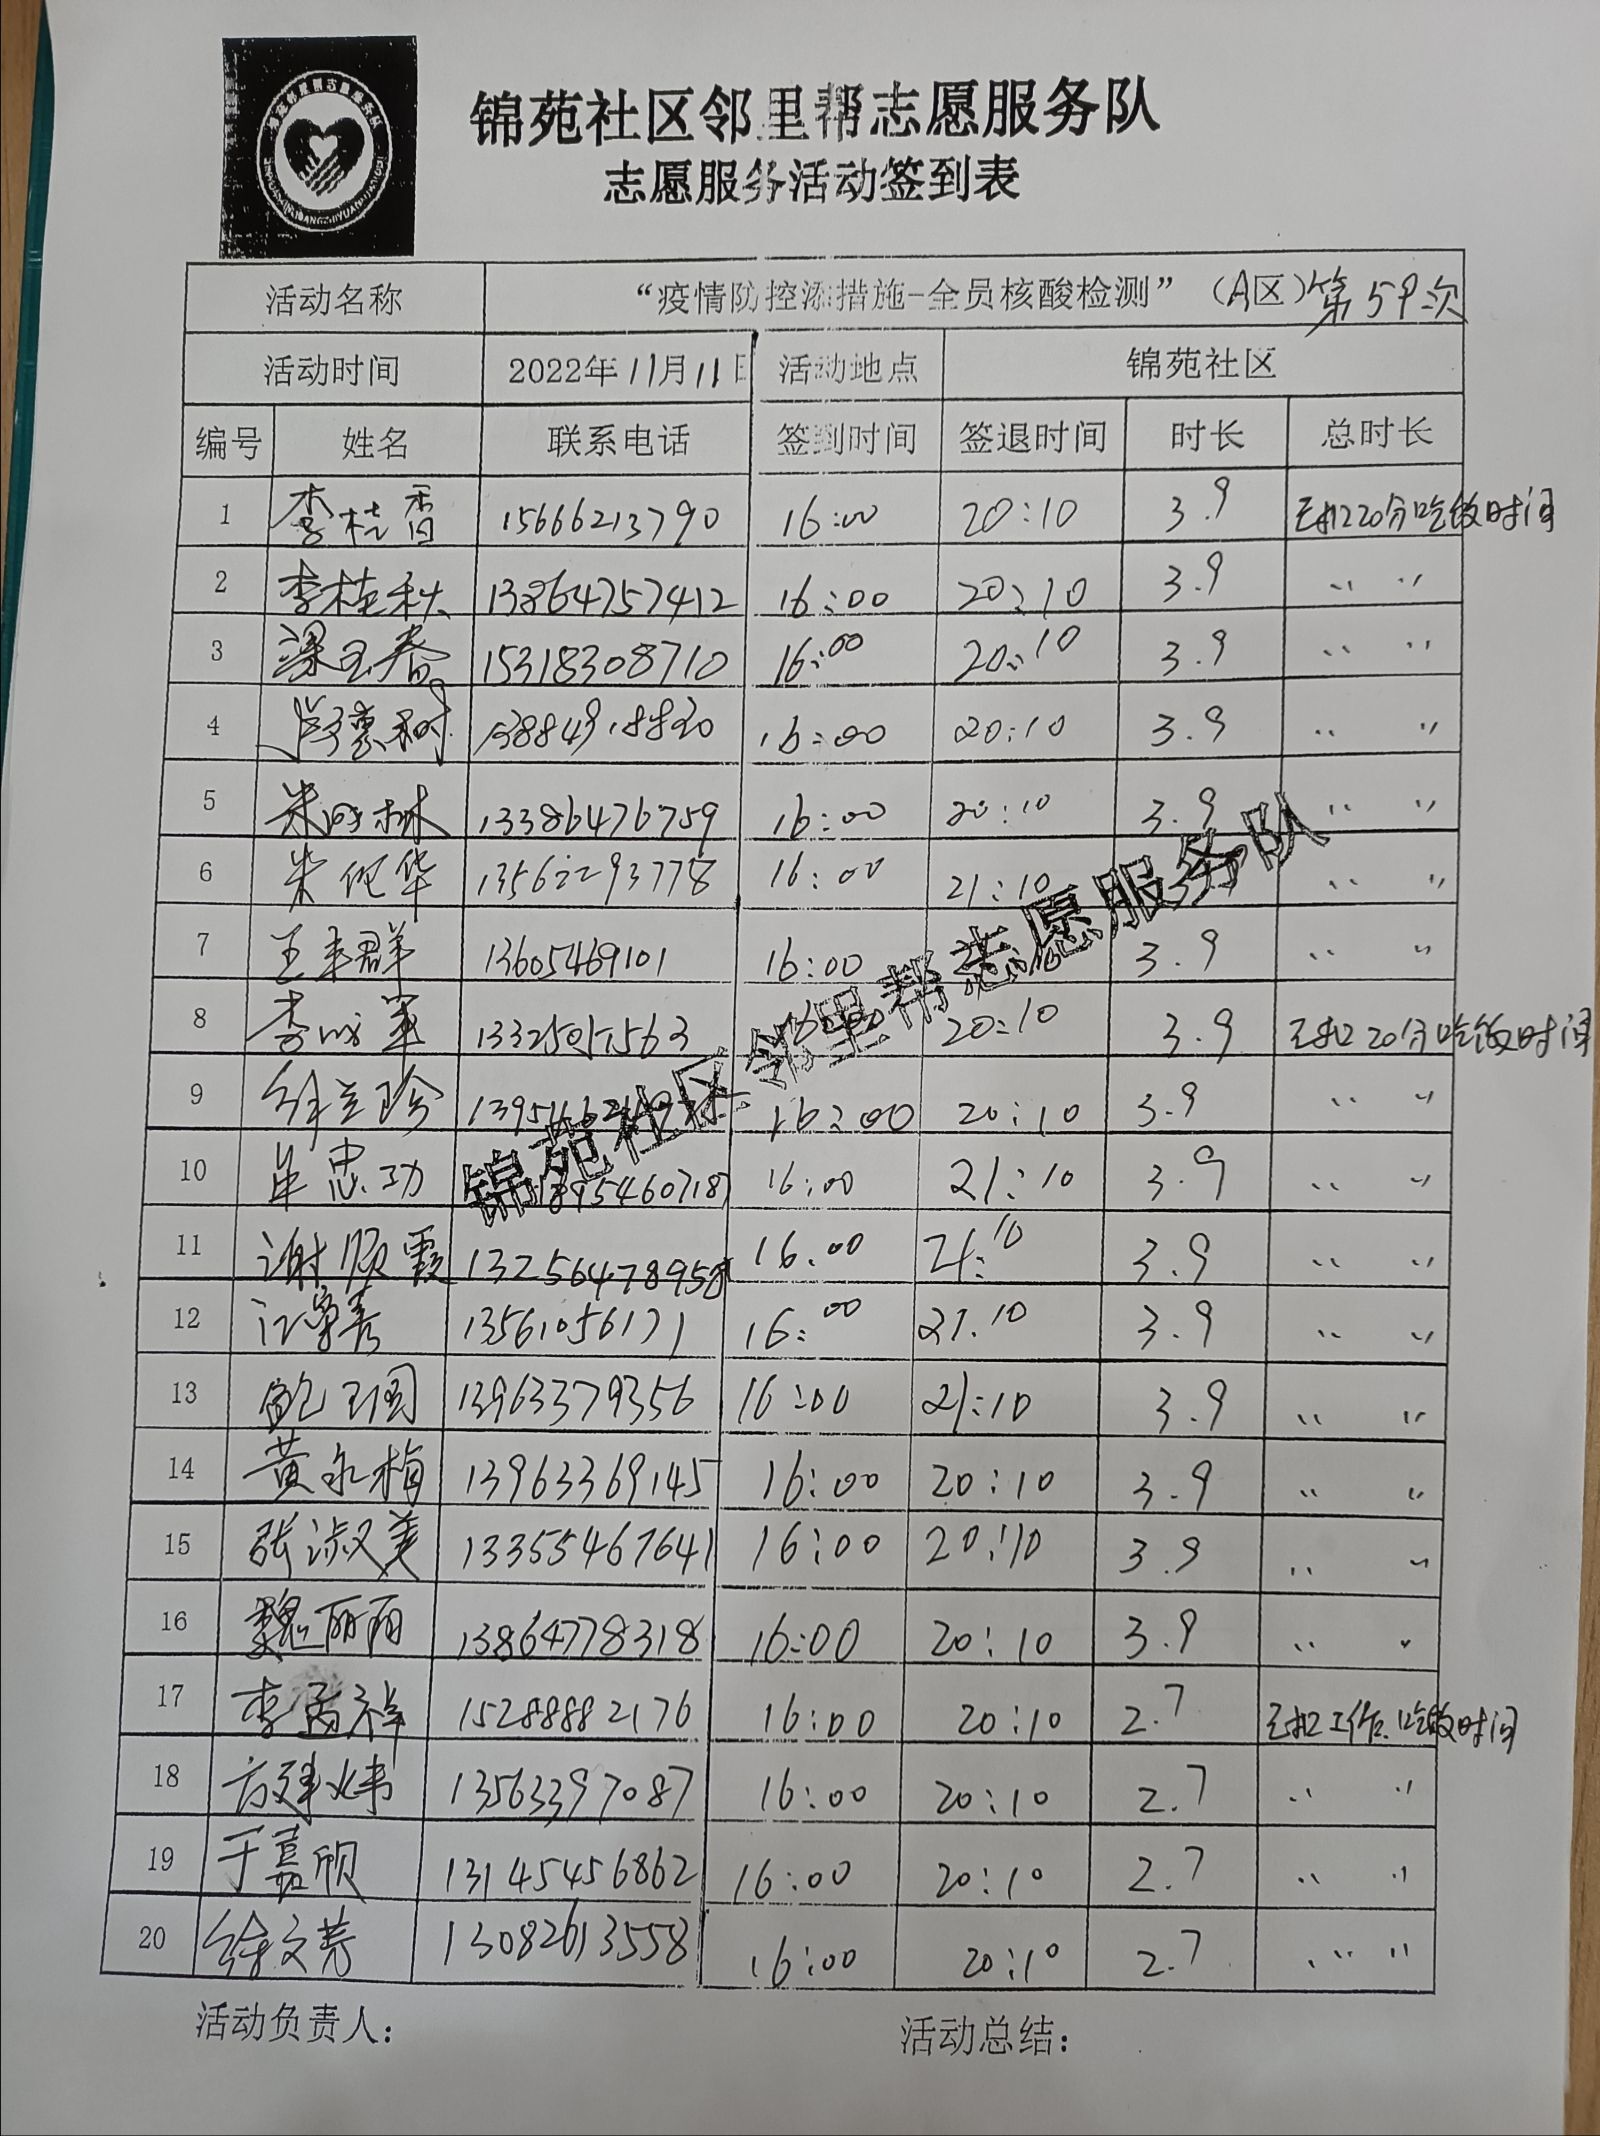 锦苑社区邻里帮志愿服务队
志愿服务活动签到表
活动名称 “疫情防控添措施-全员核酸检测”（A区）第59次
活动时间 2022年11月11日 活动地点 锦苑社区
编号 姓名 联系电话 签到时间 签退时间 时长 总时长
1 李桂香 15666213790 16:00 20:10 3.9 已扣20分吃饭时间
2 李桂秋 13864757412 16:00 20:10 3.9 〃 〃
3 梁玉春 15318308710 16:00 20:10 3.9 〃 〃
4 16:00 20:10 3.9 〃 〃
5 朱成林 13386476759 16:00 20:10 3.9 〃 〃
6 朱 华 16:00 21:10 〃 〃
7 王丰群 13605469101 16:00 3.9 〃 〃
8 李成军 16:00 20:10 3.9 已扣20分吃饭时间
9 徐兰珍 16:00 20:10 3.9 〃 〃
10 牟忠功 18954607187 16:00 21:10 3.9 〃 〃
11 谢顺霞 16:00 21:10 3.9 〃 〃
12 13561056171 16:00 21.10 3.9 〃 〃
13 13963379356 16:00 21:10 3.9 〃 〃
14 黄永梅 13963369145 16:00 20:10 3.9 〃 〃
15 张淑美 13355467641 16:00 20:10 3.9 〃 〃
16 魏丽丽 13864778318 16:00 20:10 3.9 〃 〃
17 李 祥 15288882176 16:00 20:10 2.7 已扣工作、吃饭时间
18 方建炜 13563397087 16:00 20:10 2.7 〃 〃
19 于嘉欣 13145456862 16:00 20:10 2.7 〃 〃
20 徐文芳 13082613558 16:00 20:10 2.7 〃 〃
锦苑社区邻里帮志愿服务队
活动负责人： 活动总结：